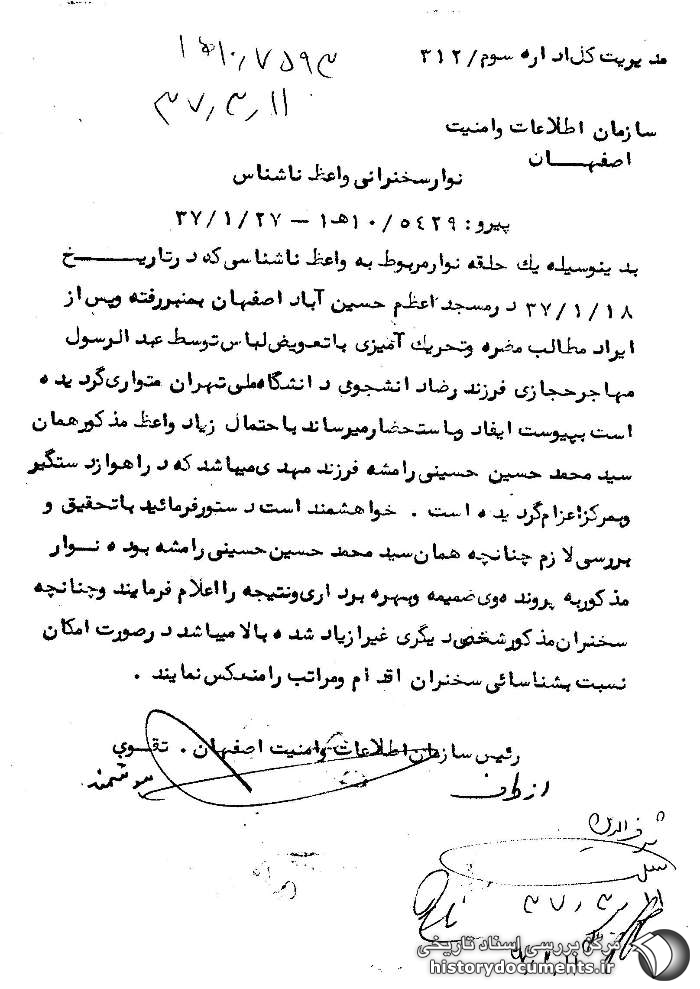 مدیریت کل اداره سوم / ۳۱۲
۱۰/۷۵۹۳ه‍ ۱
۳۷/۳/۱۱
سازمان اطلاعات وامنیت
اصفهــــان
نوار سخنرانی واعظ ناشناس
پیرو: ۱۰/۵۴۲۹ه‍ ۱ - ۳۷/۱/۲۷
بدینوسیله یك حلقه نوار مربوط به واعظ ناشناسی که در تاریـــــخ
۳۷/۱/۱۸ در مسجد اعظم حسین آباد اصفهان بمنبر رفته وپس از
ایراد مطالب مضره وتحریك آمیزی با تعویض لباس توسط عبدالرسول
مهاجر حجازی فرزند رضا دانشجوی دانشگاه ملی تهران متواری گردیده
است بپیوست ایفاد وباستحضار میرساند با حتمال زیاد واعظ مذکور همان
سید محمد حسین حسینی رامشه فرزند مهدی میباشد که در اهواز دستگیر
وبمرکز اعزام گردیده است . خواهشمند است دستور فرمائید با تحقیق و
بررسی لازم چنانچه همان سید محمد حسین حسینی رامشه بوده نـــوار
مذکور به پرونده وی ضمیمه وبهره برداری ونتیجه را اعلام فرمایند وچنانچه
سخنران مذکور شخص دیگری غیر از یاد شده بالا میباشد در صورت امکان
نسبت بشناسائی سخنران اقدام ومراتب را منعکس نمایند .
رئیس سازمان اطلاعات وامنیت اصفهان . تقوی
از طرف
شرف الدین
۳۷/۳
مرکز بررسی اسناد تاریخی
historydocuments.ir